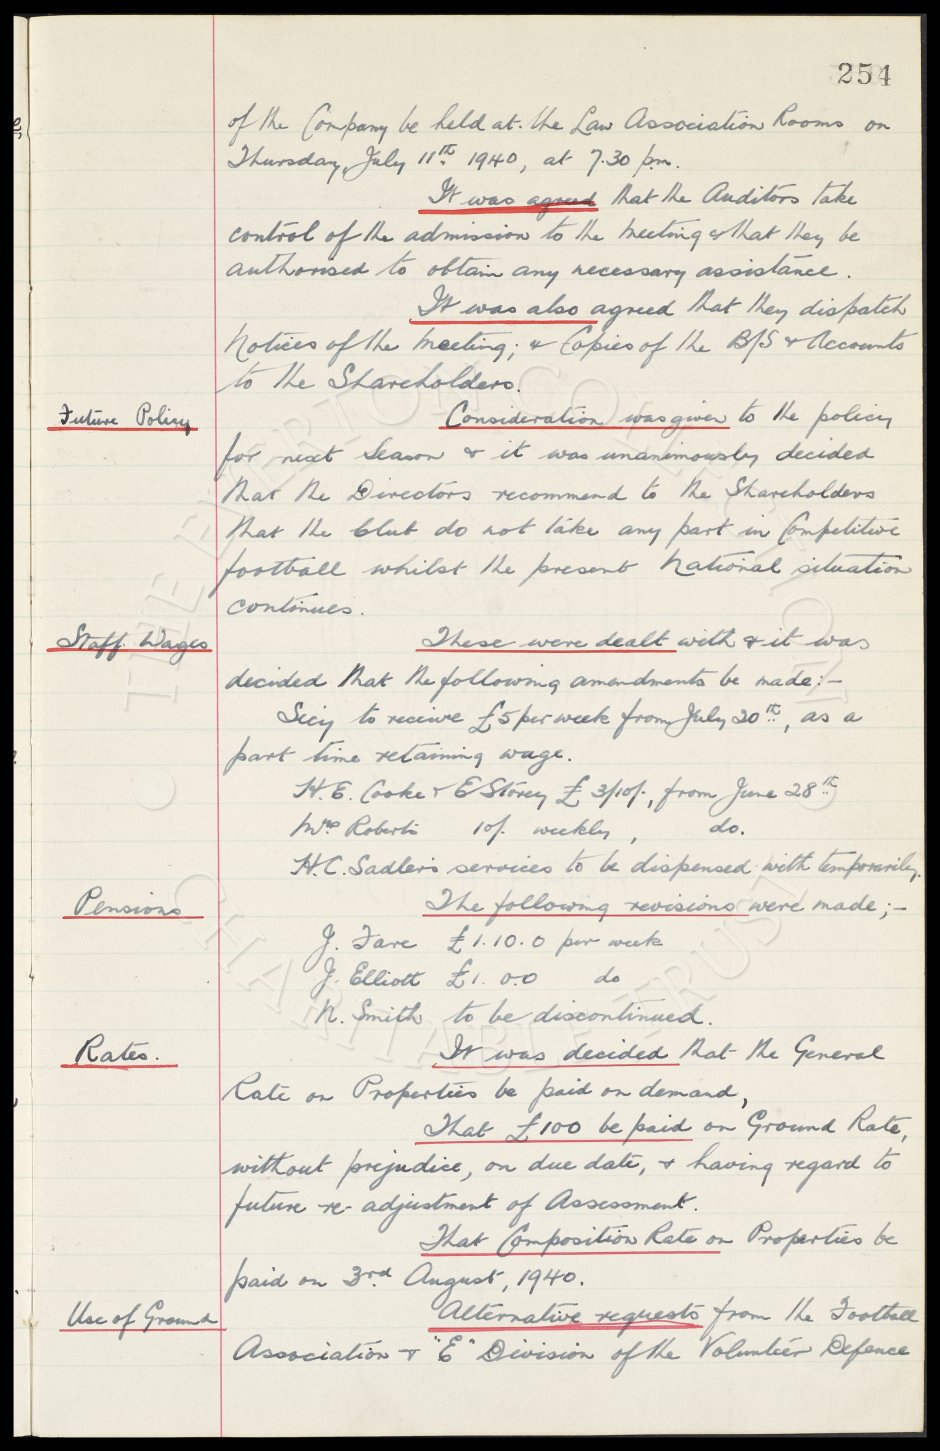 254
of the Company be held at the Law Association Rooms on
Thursday, July 11th 1940, at 7.30 pm.
It was agreed that the Auditors take
control of the admission to the Meeting & that they be
authorised to obtain any necessary assistance.
It was also agreed that they dispatch
Notices of the Meeting; & Copies of the B/S & Accounts
to the Shareholders.
Future Policy Consideration was given to the policy
for next Season & it was unanimously decided
that the Directors recommend to the Shareholders
that the Club do not take any part in Competitive
football whilst the present National situation
continues.
Staff Wages These were dealt with & it was
decided that the following amendments be made:-
to receive £5 per week from July 20th, as a
part time retaining wage.
H.E. Cooke & E Storey £3/10/-, from June 28th
Mrs Roberts 10/- weekly, do.
H.C. Sadler's services to be dispensed with temporarily.
Pensions The following revisions were made;-
J. Fare £1.10.0 per week
J. Elliott £1.0.0 do
N. Smith to be discontinued.
Rates. It was decided that the General
Rate on Properties be paid on demand,
That £100 be paid on Ground Rate,
without prejudice, on due date, & having regard to
future re-adjustment of Assessment.
That Composition Rate on Properties be
paid on 3rd August, 1940.
Use of Ground Alternative requests from the Football
Association & "E" Division of the Volunteer Defence
© THE EVERTON COLLECTION
CHARITABLE TRUST